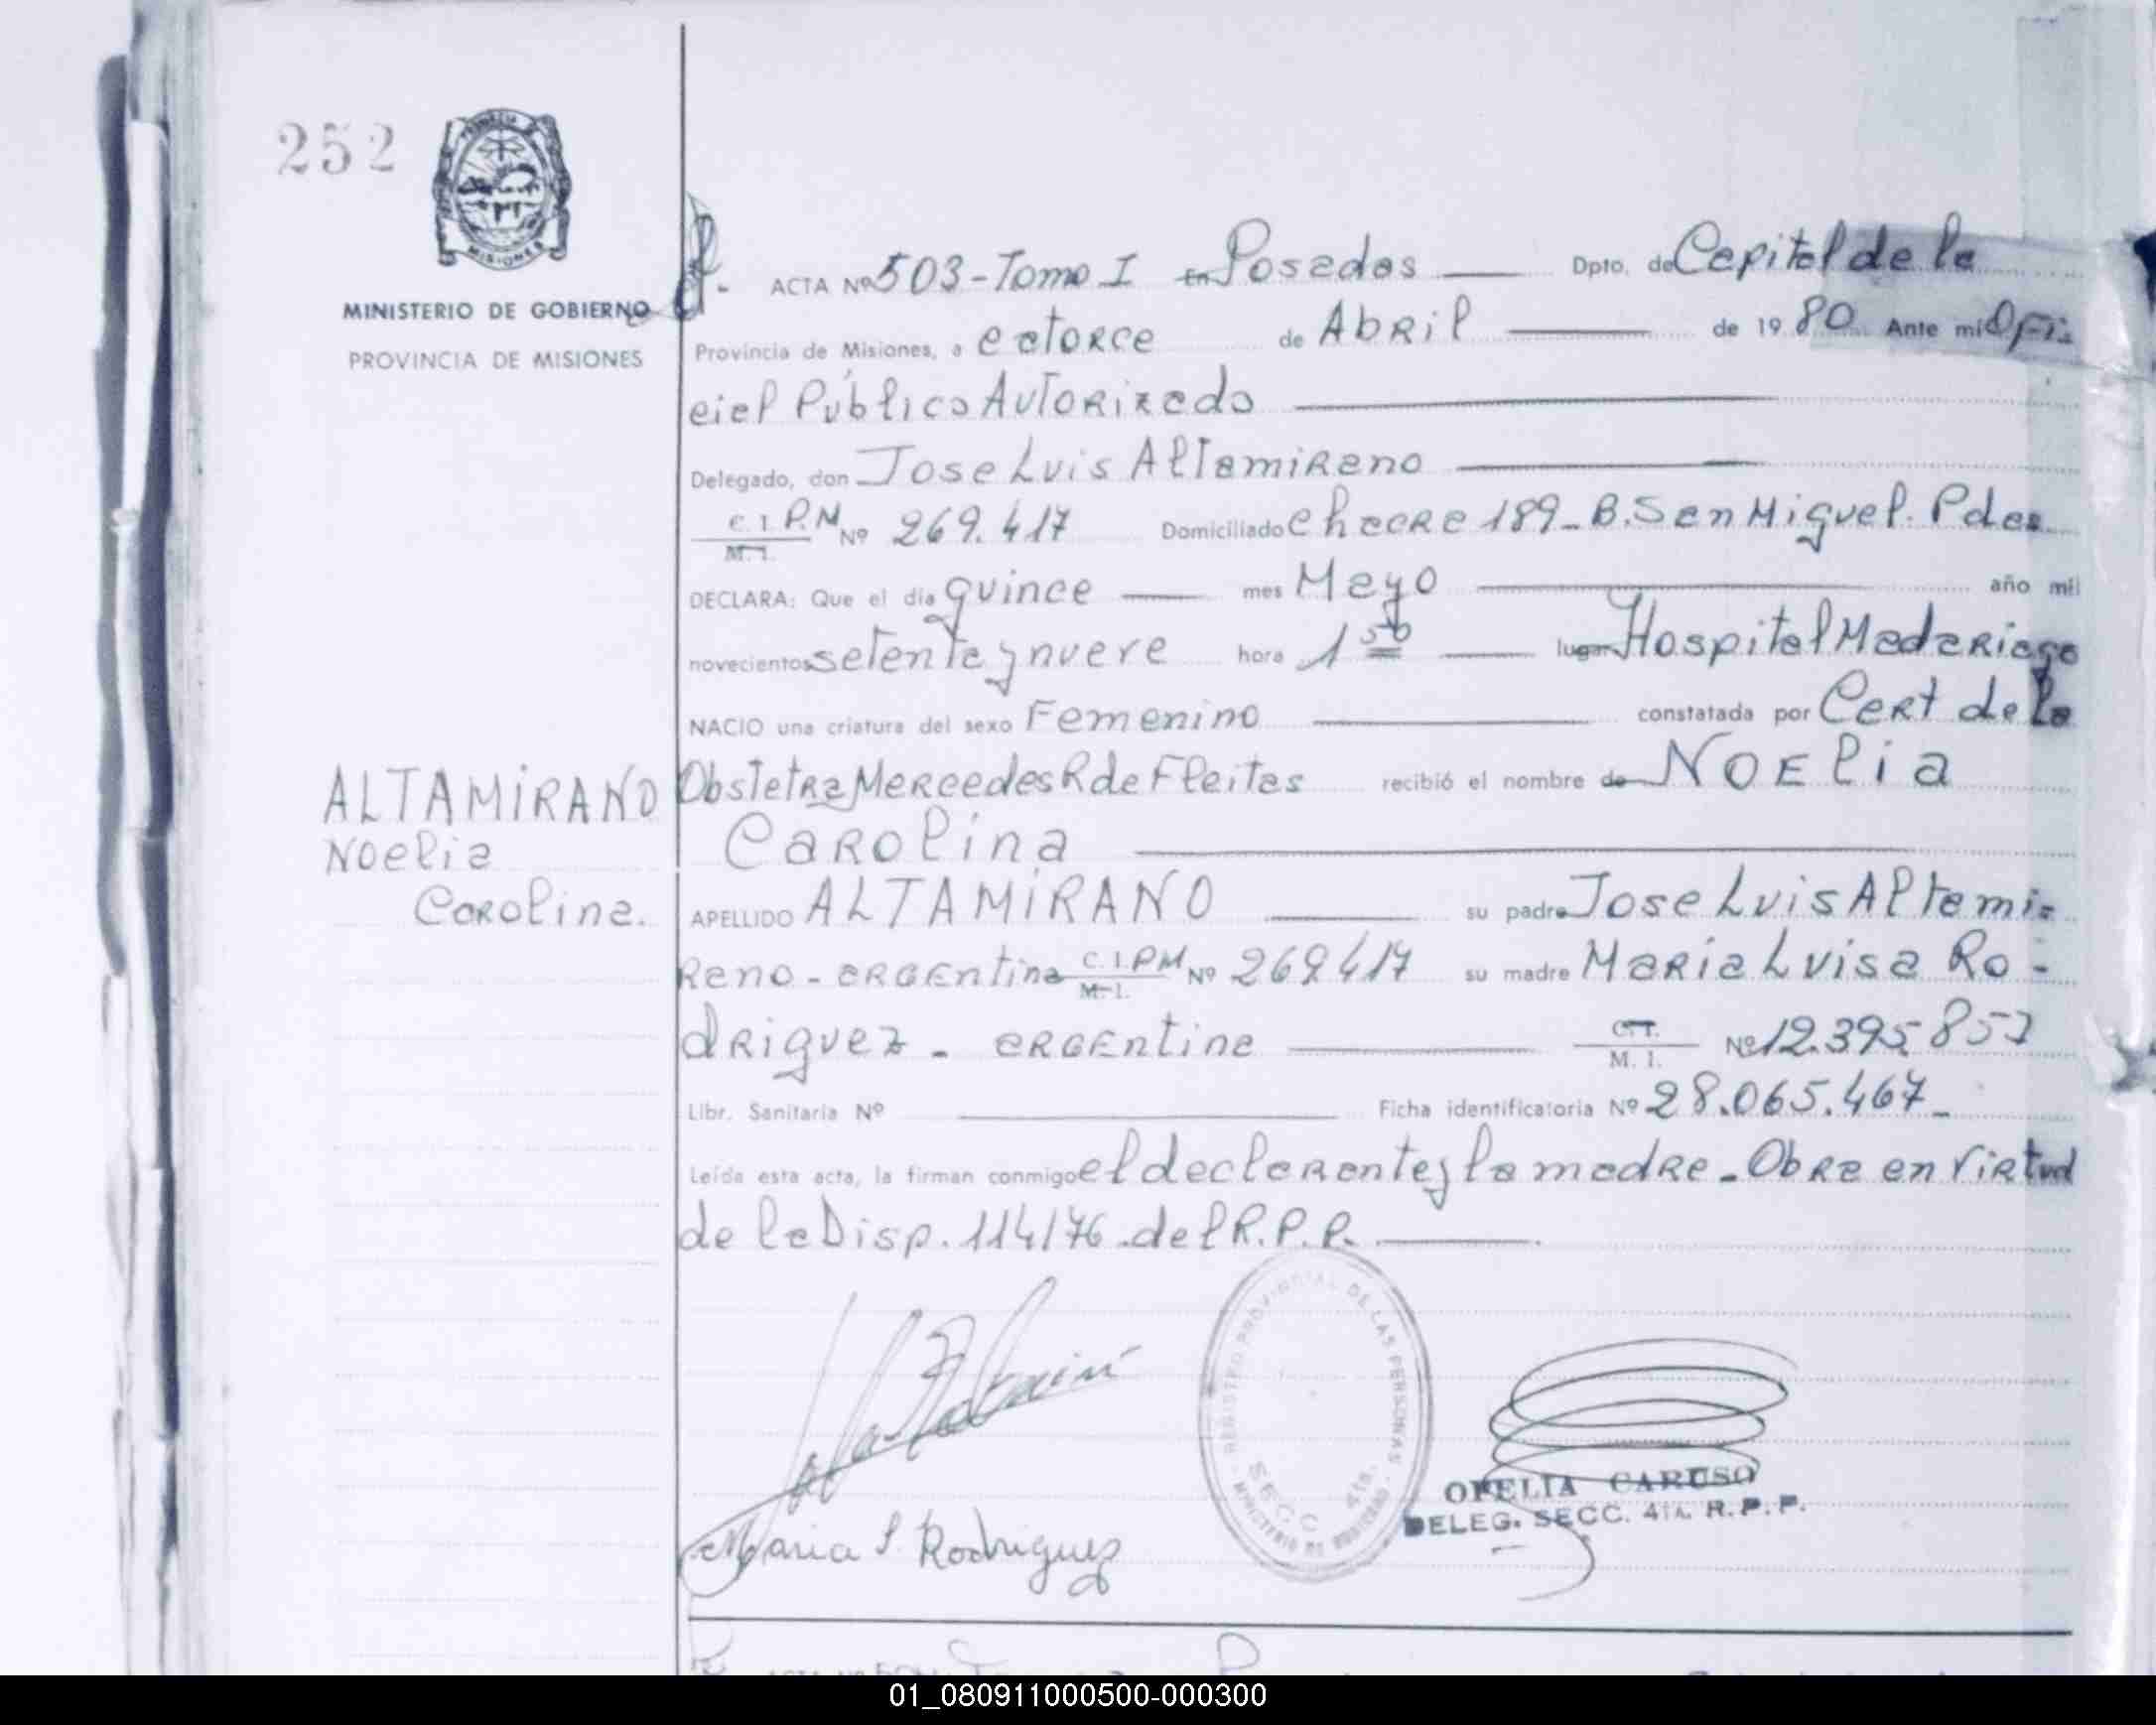 252
MISIONES
MINISTERIO DE GOBIERNO
PROVINCIA DE MISIONES
ACTA Nº 503-Tomo I En Posadas Dpto. de Capital de la
Provincia de Misiones, a catorce de Abril de 1980 Ante mi Ofi-
cial Público Autorizado
Delegado, don Jose Luis Altamirano
C.I.P.M Nº 269.417 Domiciliado Chacra 189_B. San Miguel. Pdas
M.I.
DECLARA: Que el día quince mes Mayo año mil
novecientos setenta y nueve hora 1 50 lugar Hospital Madariaga
NACIO una criatura del sexo Femenino constatada por Cert de la
Obstetra Mercedes R de Fleitas recibió el nombre de NOElia
Carolina
ALTAMIRANO
Noelia
Carolina.
APELLIDO ALTAMIRANO su padre Jose Luis Altami-
rano - argentino C.I.PM Nº 269417 su madre Maria Luisa Ro-
M.I.
driguez - argentina C.I. Nº 12.395.857
M. I.
Libr. Sanitaria Nº Ficha identificatoria Nº 28.065.467_
Leída esta acta, la firman conmigo el declarante y la madre - Obra en virtud
de la Disp. 114/76 del R.P.P.
Maria L. Rodriguez
REGISTRO PROVINCIAL DE LAS PERSONAS
SECC 4ta.
MINISTERIO DE GOBIERNO
OFELIA CARUSO
DELEG. SECC. 4TA. R.P.P.
01_080911000500-000300